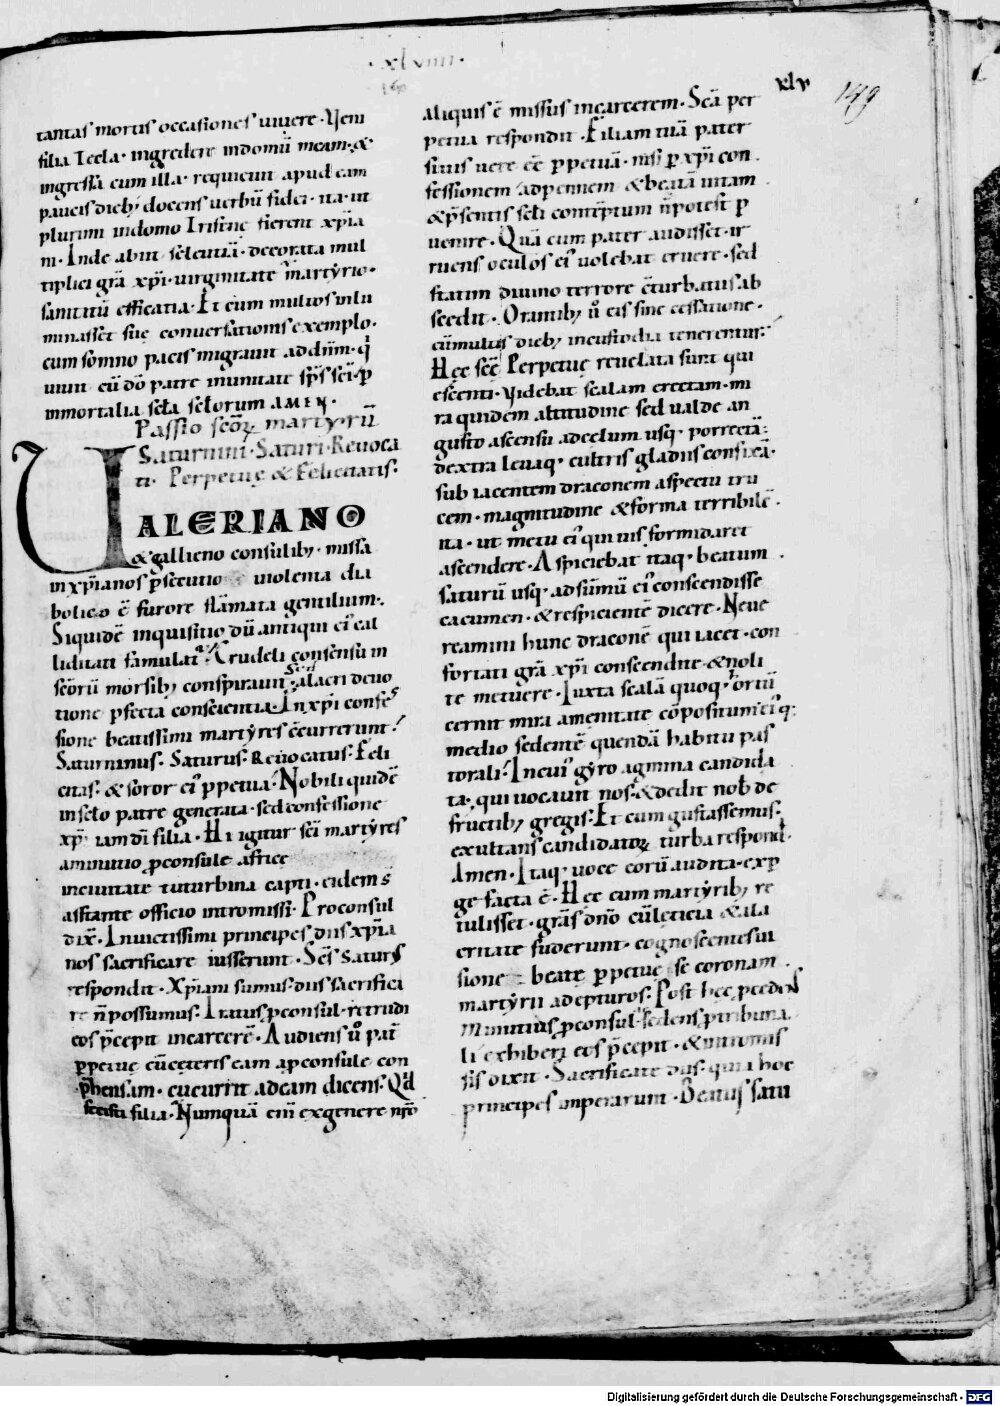 ·xlviiii·
xlv
149
tantas mortis occasiones vivere· Veni
filia Tecla· ingredere indomū meam· &
ingressa cum illa· requieuit apud eam
paucis dieb; docens uerbū fidei· ita ut
plurimi indomo Trisinę fierent xp̄ia
ni· Inde abiit seleuciā· decorata mul
tiplici grā xp̄i· uirginitate martyrio·
sanitatū efficatia· Et cum multos inlu
minasset suę conuersationis exemplo·
cum somno pacis migrauit ad dn̄m· q̇
uiuit cū dō patre inunitate sp̄s sc̄i· p̄
inmortalia sc̄la sc̄lorum AMEN·
Passio sc̄oꝝ martyrū
Saturnini· Saturi· Reuoca
ti· Perpetuę & Felicitatis·
VALERIANO
& gallieno consulib; missa
inxp̄ianos p̄secutio uiolenta dia
bolico ē furore flāmata gentilium·
Siquidē inquisitio dū antiqui ei᾽ cal
liditati famulat᾽ Crudeli consensu in
sc̄orū morsib; conspirauit· alacri deuo
tione p̄fecta conscientia· Inxp̄i confes
sione beatissimi martyres c̄currerunt·
Saturninus· Saturus· Reuocatus· Feli
citas· & soror ei᾽ p̄petua· Nobili quidē
insc̄lo patre generata· sed confessione
xp̄i iam dī filia· Hi igitur sc̄i martyres
aminutio p̄consule africe
inciuitate tuturbina capti· eidem
astante officio intromissi· Proconsul
dix̄· Inuictissimi principes diis xp̄ia
nos sacrificare iusserunt· Sc̄s saturus
respondit· Xp̄iani sumus· diis sacrifica
re n̄ possumus· Iratus p̄consul· retrudi
eos p̄cepit incarcerē· Audiens u᾽o pat̄
p̄petuę cū cęteris eam ap̄consule con
p̄hensam· cucurrit ad eam dicens· Q᾽d
fecisti filia· Numquā eni᾽ exgenere nr̄o
aliquis ē missus incarcerem· Sc̄a per
petua respondit· Filiam tuā pater
situs uere eē p̄petuā· nisi p̄ xp̄i con
fessionem ad perennem & beatā uitam
& p̄sentis sc̄li contēptum n̄ potest p̄
uenire· Quā cum pater audisset· ir
ruens oculos ei᾽ uolebat eruere· sed
statim diuino terrore c̄turbatus ab
scedit· Orantib; ū eis sine cessatione·
cū multis dieb; incustodia tenerentur·
Hęc sc̄ę Perpetuę reuelata sunt qui
escenti· Videbat scalam erectam· mi
ra quidem altitudine sed ualde an
gusto ascensu ad celum usq· porrectā·
dextra leuaq· cultris gladiis consixā·
sub iacentem draconem aspectu tru
cem· magnitudine & forma terribilē·
ita· ut metu ei᾽ qui uis formidaret
ascendere· Aspiciebat itaq· beatum
saturū usq· ad sūmū ei᾽ conscendisse
cacumen· & respicientē dicere· Neue
reamini hunc draconē qui iacet· con
fortati grā xp̄i conscendite· & noli
te metuere· Iuxta scalā quoq· ortū
cernit mira amenitate cōpositum· ei᾽q·
medio sedentē quendā habitu pas
torali· Incui᾽ gyro agmina candida
ta· qui uocauit nos· & dedit nob᾽ de
fructib; gregis· Et cum gustassemus·
exultans candidatoꝝ turba respond·
Amen· Itaq· uoce eorū audita· exp̄
ge facta ē· Hęc cum martyrib; re
tulisset· grās dn̄o cū leticia & ala
critate fuderunt· cognoscentes ui
sione beatę p̄petuę se coronam
martyrii adepturos· Post hęc p̄cedēs
Minutius p̄consul· sedens p̄ tribuna
li exhiberi eos p̄cepit· & intromis
sis dixit· Sacrificate diis· quia hoc
principes imperarunt· Beatus satu
Digitalisierung gefördert durch die Deutsche Forschungsgemeinschaft - DFG